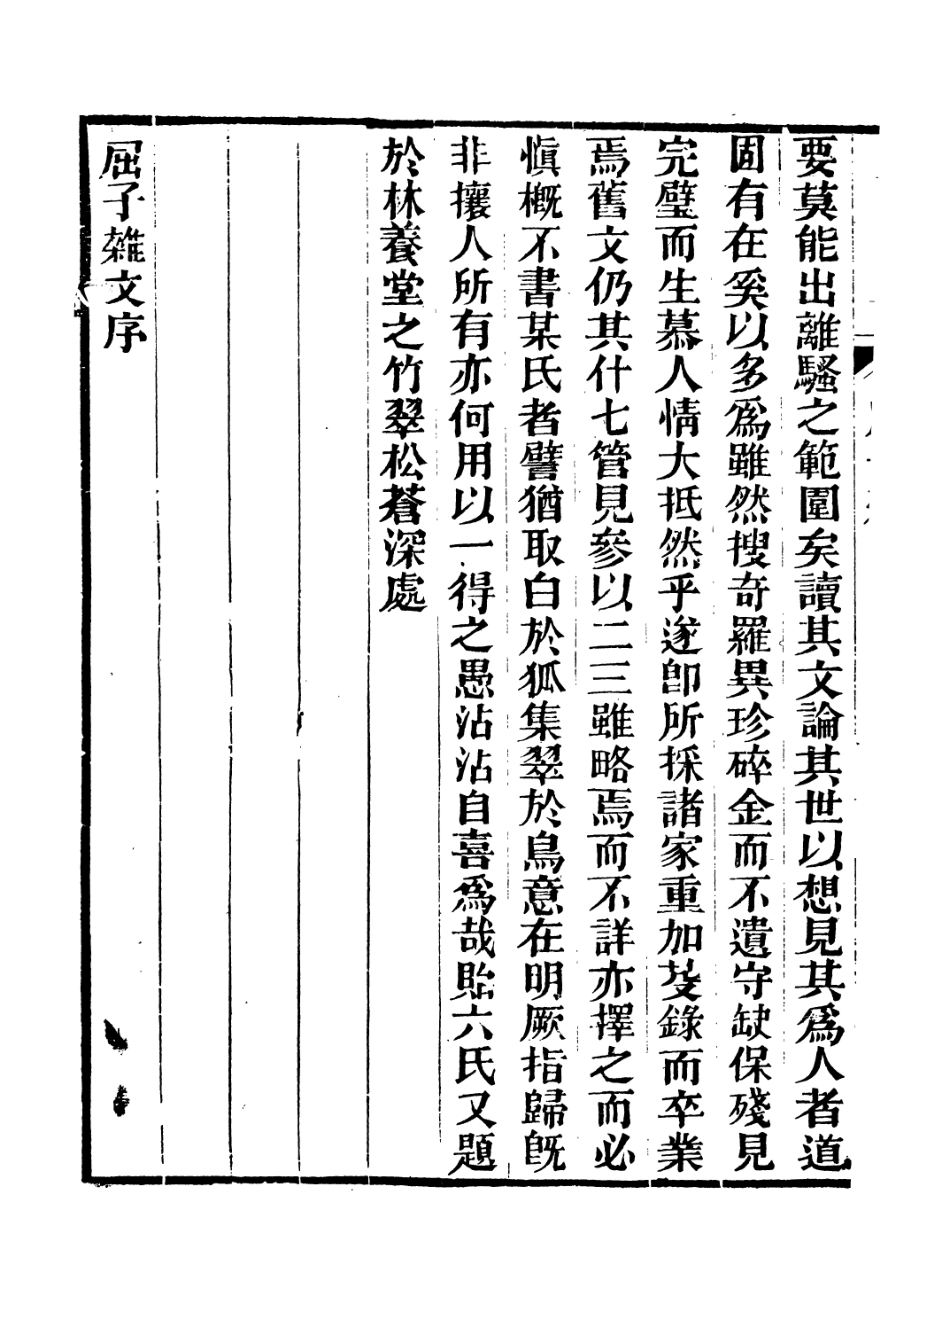 要莫能出離騷之範圍矣讀其文論其世以想見其爲人者道
固有在奚以多爲雖然搜奇羅異珍碎金而不遺守缺保殘見
完璧而生慕人情大抵然乎遂卽所採諸家重加芟錄而卒業
焉舊文仍其什七管見參以二三雖略焉而不詳亦擇之而必
愼槪不書某氏者譬猶取白於狐集翠於鳥意在明厥指歸旣
非攘人所有亦何用以一得之愚沾沾自喜爲哉貽六氏又題
於林養堂之竹翠松蒼深處
屈子雜文序